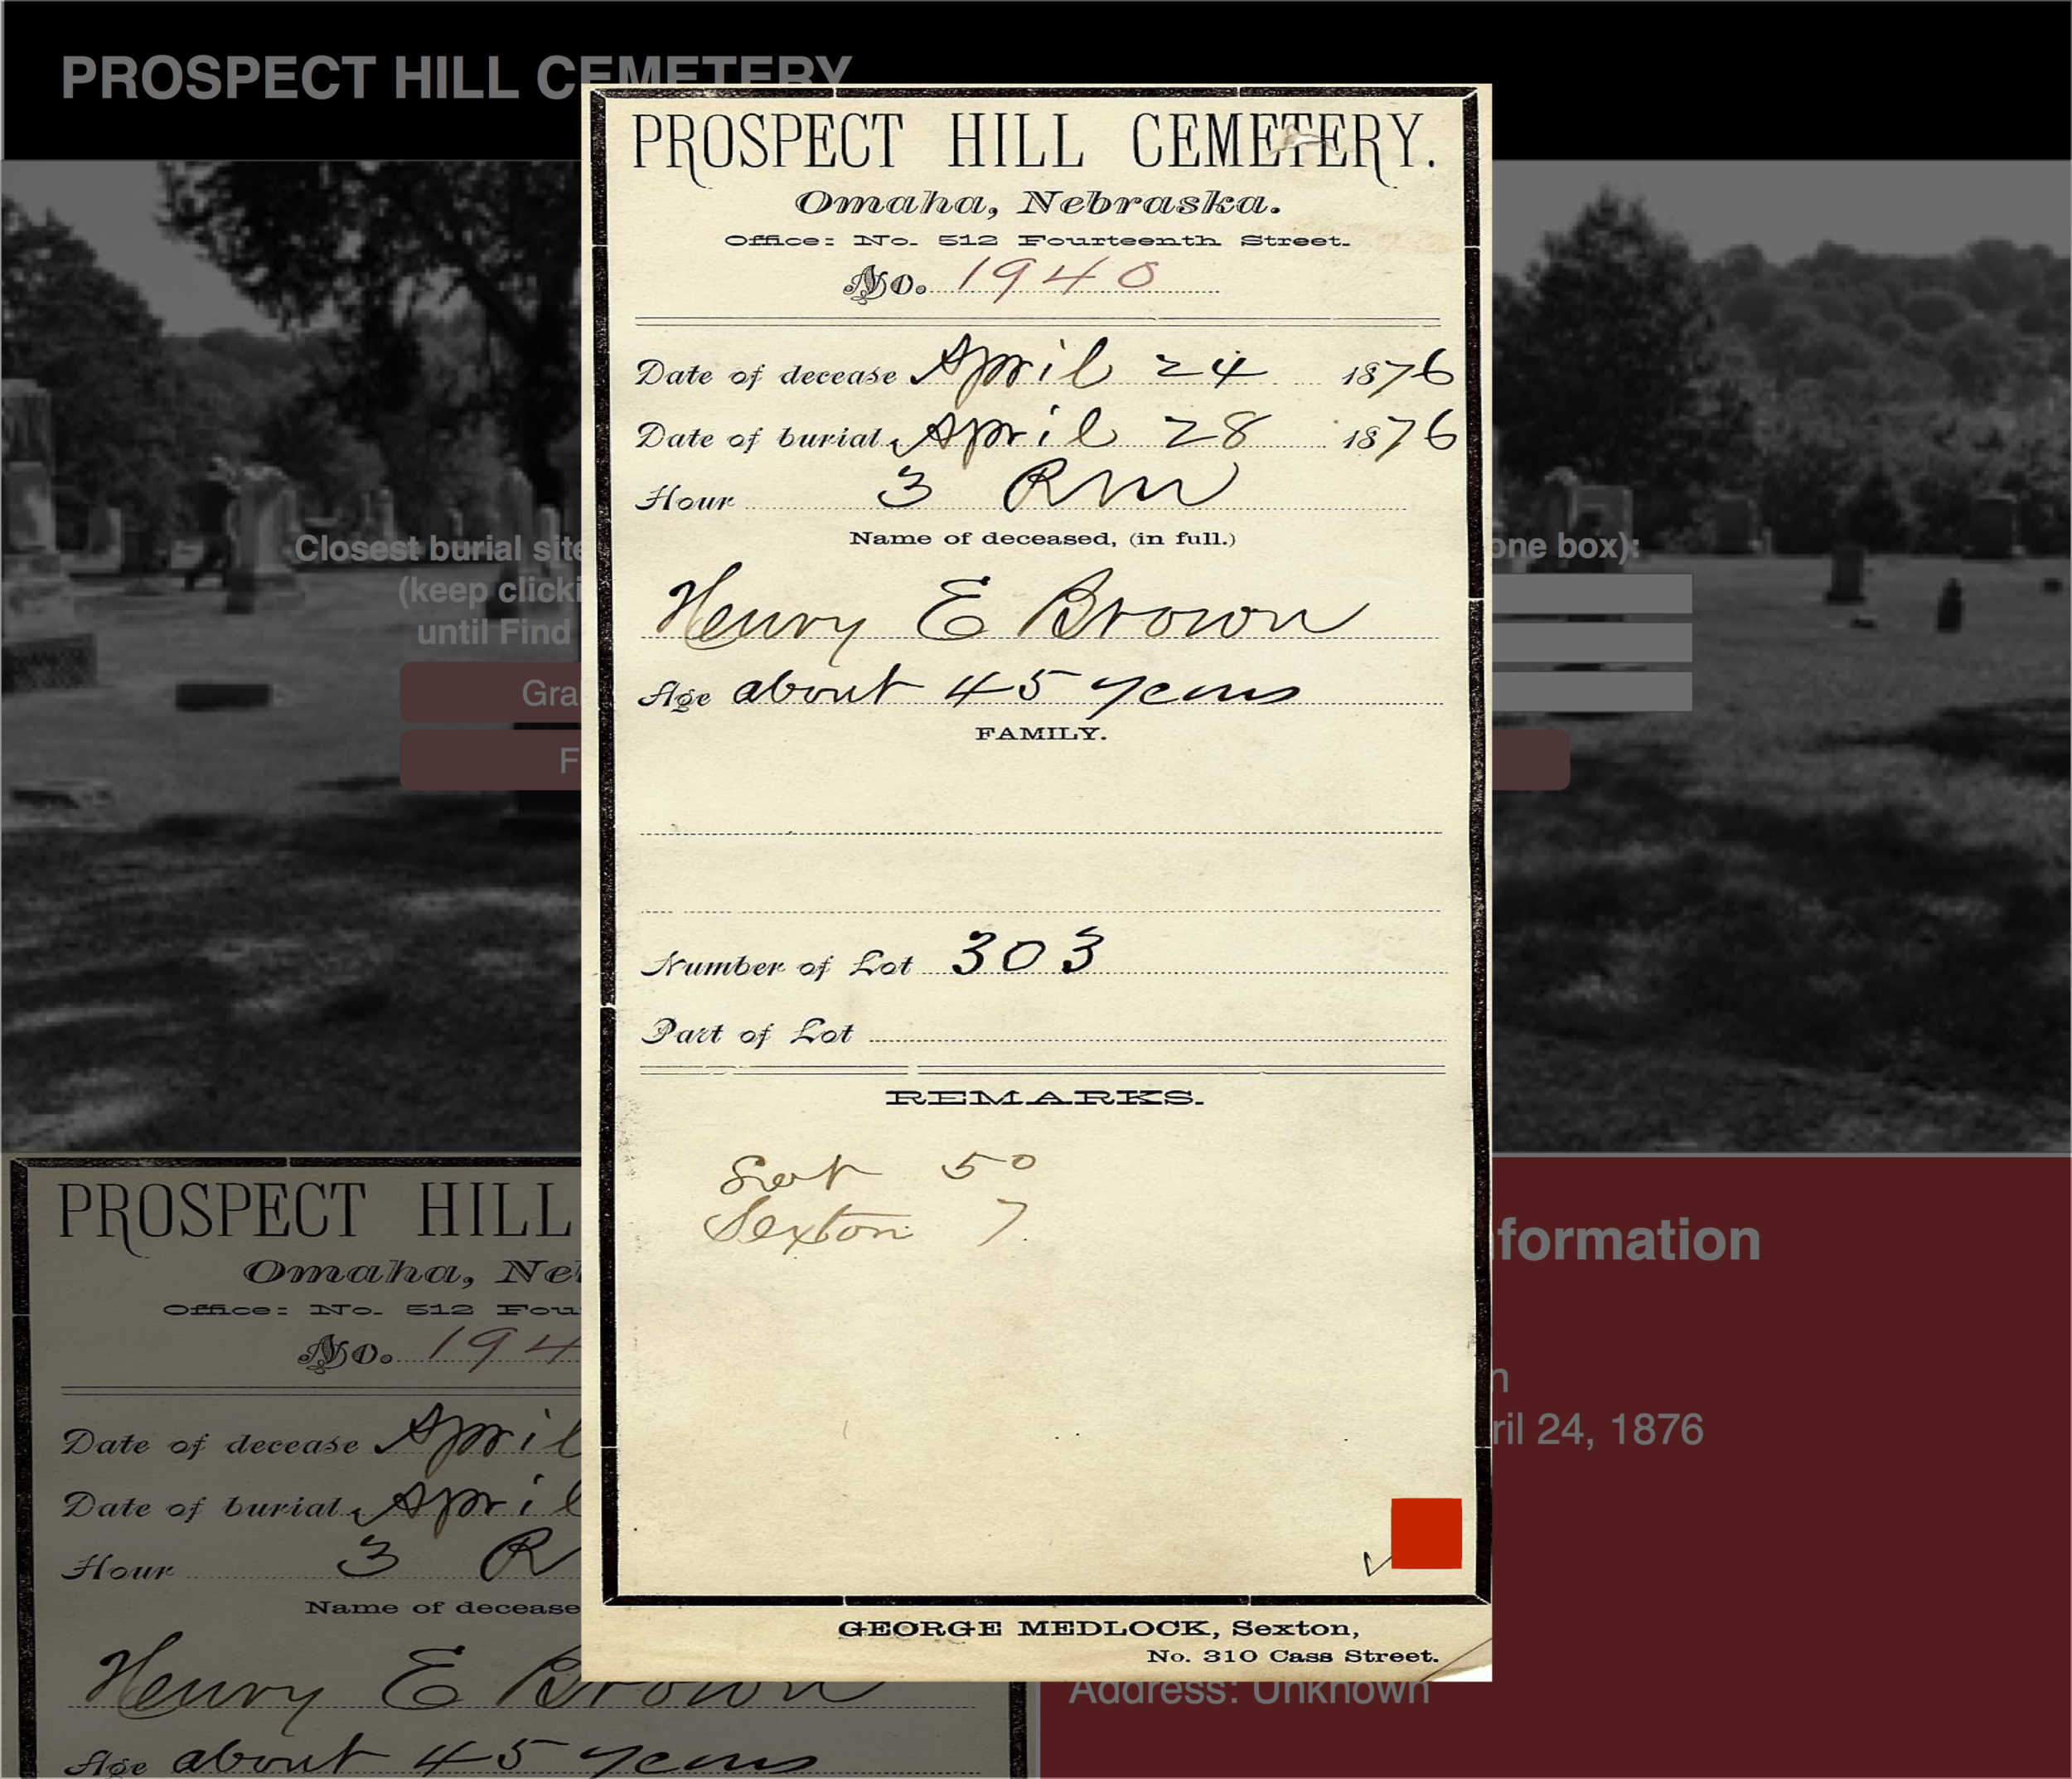 PROSPECT HILL CEMETERY
PROSPECT HILL CEMETERY.
Omaha, Nebraska.
Office: No. 512 Fourteenth Street.
No. 1940
Date of decease April 24 1876
Date of burial, April 28 1876
Hour 3 Pm
Name of deceased, (in full.)
Henry E Brown
Age about 45 years
FAMILY.
Number of Lot 303
Part of Lot
REMARKS.
Lot 50
Sexton 7
GEORGE MEDLOCK, Sexton,
No. 310 Cass Street.
Closest burial site
(keep clicki
until Find
Gra
F
one box):
PROSPECT HILL
Omaha, Ne
Office: No. 512 Fou
No. 194
Date of decease April
Date of burial, April
Hour 3 P
Name of decease
Henry E Brown
Age about 45 years
formation
n
ril 24, 1876
Address: Unknown